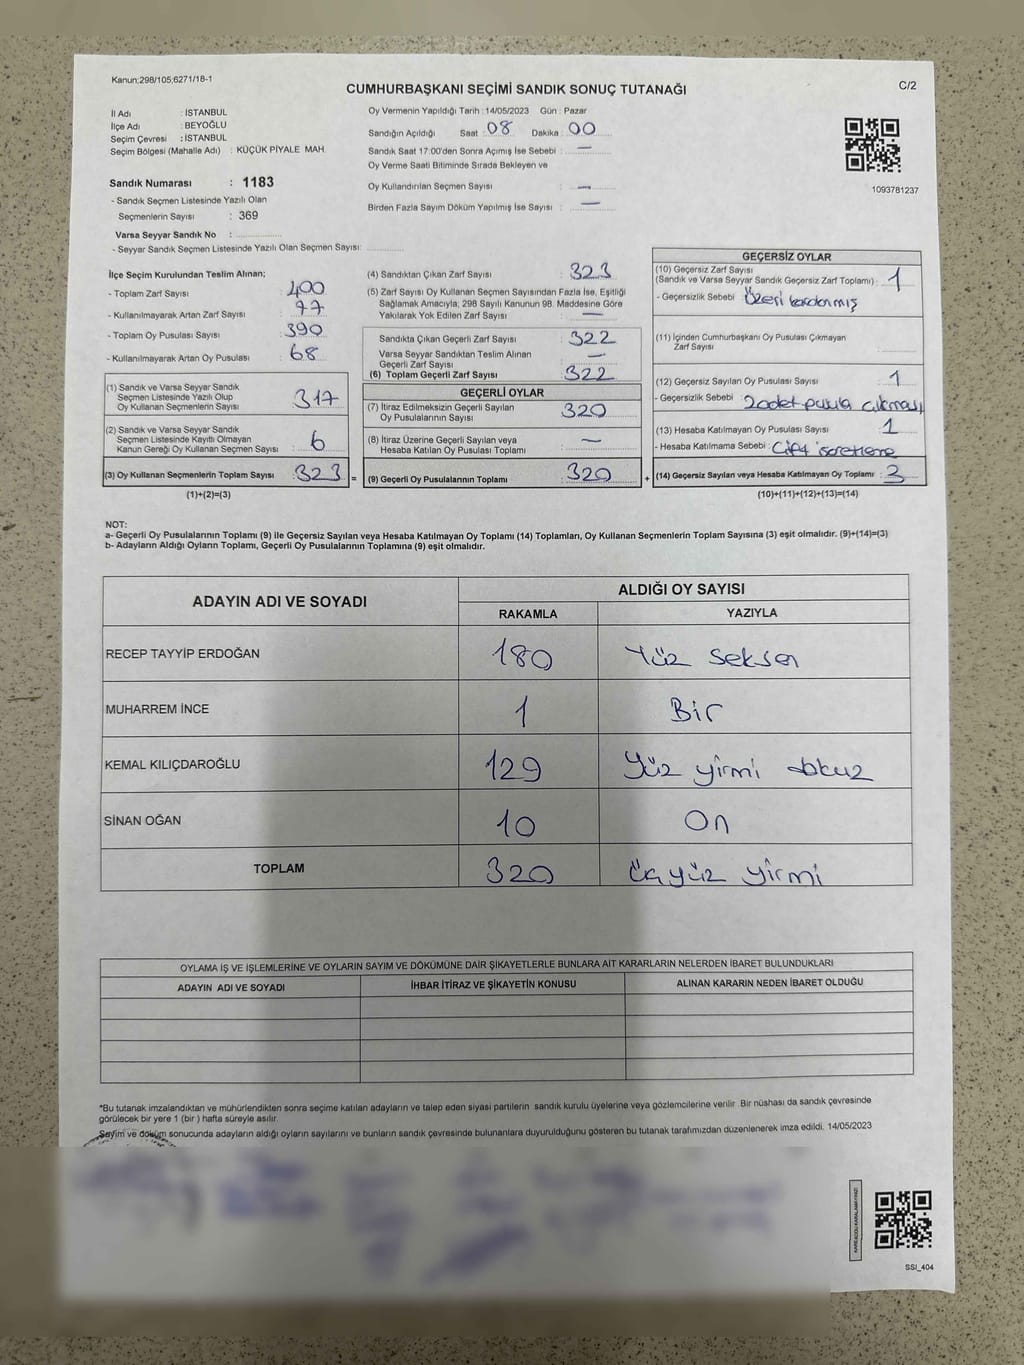 Kanun:298/105;6271/18-1
CUMHURBAŞKANI SEÇİMİ SANDIK SONUÇ TUTANAĞI
C/2
İl Adı : İSTANBUL
İlçe Adı : BEYOĞLU
Seçim Çevresi : İSTANBUL
Seçim Bölgesi (Mahalle Adı) : KÜÇÜK PİYALE MAH.
Sandık Numarası : 1183
- Sandık Seçmen Listesinde Yazılı Olan
Seçmenlerin Sayısı : 369
Varsa Seyyar Sandık No :
- Seyyar Sandık Seçmen Listesinde Yazılı Olan Seçmen Sayısı:
Oy Vermenin Yapıldığı Tarih : 14/05/2023 Gün : Pazar
Sandığın Açıldığı Saat : 08 Dakika : 00
Sandık Saat 17:00'den Sonra Açımış İse Sebebi : —
Oy Verme Saati Bitiminde Sırada Bekleyen ve
Oy Kullandırılan Seçmen Sayısı : —
Birden Fazla Sayım Döküm Yapılmış İse Sayısı : —
1093781237
İlçe Seçim Kurulundan Teslim Alınan;
- Toplam Zarf Sayısı : 400
- Kullanılmayarak Artan Zarf Sayısı : 77
- Toplam Oy Pusulası Sayısı : 390
- Kullanılmayarak Artan Oy Pusulası : 68
(1) Sandık ve Varsa Seyyar Sandık
Seçmen Listesinde Yazılı Olup
Oy Kullanan Seçmenlerin Sayısı : 317
(2) Sandık ve Varsa Seyyar Sandık
Seçmen Listesinde Kayıtlı Olmayan
Kanun Gereği Oy Kullanan Seçmen Sayısı : 6
(3) Oy Kullanan Seçmenlerin Toplam Sayısı : 323 =
(1)+(2)=(3)
(4) Sandıktan Çıkan Zarf Sayısı : 323
(5) Zarf Sayısı Oy Kullanan Seçmen Sayısından Fazla İse, Eşitliği
Sağlamak Amacıyla; 298 Sayılı Kanunun 98. Maddesine Göre
Yakılarak Yok Edilen Zarf Sayısı : —
Sandıkta Çıkan Geçerli Zarf Sayısı : 322
Varsa Seyyar Sandıktan Teslim Alınan
Geçerli Zarf Sayısı : —
(6) Toplam Geçerli Zarf Sayısı : 322
GEÇERLİ OYLAR
(7) İtiraz Edilmeksizin Geçerli Sayılan
Oy Pusulalarının Sayısı : 320
(8) İtiraz Üzerine Geçerli Sayılan veya
Hesaba Katılan Oy Pusulası Toplamı : —
(9) Geçerli Oy Pusulalarının Toplamı : 320 +
GEÇERSİZ OYLAR
(10) Geçersiz Zarf Sayısı
(Sandık ve Varsa Seyyar Sandık Geçersiz Zarf Toplamı) : 1
- Geçersizlik Sebebi : Üzeri karalanmış
(11) İçinden Cumhurbaşkanı Oy Pusulası Çıkmayan
Zarf Sayısı :
(12) Geçersiz Sayılan Oy Pusulası Sayısı : 1
- Geçersizlik Sebebi : 2 adet pusula çıkması
(13) Hesaba Katılmayan Oy Pusulası Sayısı : 1
- Hesaba Katılmama Sebebi : Çift işaretleme
(14) Geçersiz Sayılan veya Hesaba Katılmayan Oy Toplamı : 3
(10)+(11)+(12)+(13)=(14)
NOT:
a- Geçerli Oy Pusulalarının Toplamı (9) ile Geçersiz Sayılan veya Hesaba Katılmayan Oy Toplamı (14) Toplamları, Oy Kullanan Seçmenlerin Toplam Sayısına (3) eşit olmalıdır. (9)+(14)=(3)
b- Adayların Aldığı Oyların Toplamı, Geçerli Oy Pusulalarının Toplamına (9) eşit olmalıdır.
ADAYIN ADI VE SOYADI
ALDIĞI OY SAYISI
RAKAMLA YAZIYLA
RECEP TAYYİP ERDOĞAN 180 Yüz seksen
MUHARREM İNCE 1 Bir
KEMAL KILIÇDAROĞLU 129 Yüz yirmi dokuz
SİNAN OĞAN 10 On
TOPLAM 320 Üçyüz yirmi
OYLAMA İŞ VE İŞLEMLERİNE VE OYLARIN SAYIM VE DÖKÜMÜNE DAİR ŞİKAYETLERLE BUNLARA AİT KARARLARIN NELERDEN İBARET BULUNDUKLARI
ADAYIN ADI VE SOYADI İHBAR İTİRAZ VE ŞİKAYETİN KONUSU ALINAN KARARIN NEDEN İBARET OLDUĞU
*Bu tutanak imzalandıktan ve mühürlendikten sonra seçime katılan adayların ve talep eden siyasi partilerin sandık kurulu üyelerine veya gözlemcilerine verilir. Bir nüshası da sandık çevresinde
görülecek bir yere 1 (bir ) hafta süreyle asılır.
Sayım ve döküm sonucunda adayların aldığı oyların sayılarını ve bunların sandık çevresinde bulunanlara duyurulduğunu gösteren bu tutanak tarafımızdan düzenlenerek imza edildi. 14/05/2023
SSI_404